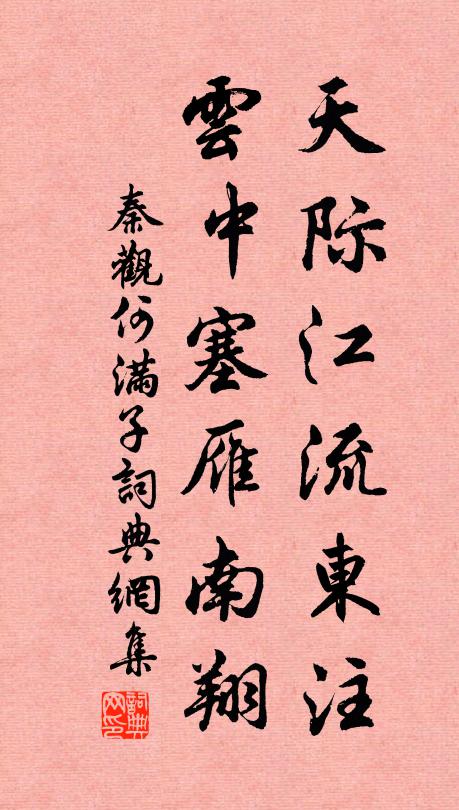 天际江流東注
雲中塞雁南翔
秦觀何滿子詞典網集
詞典网印